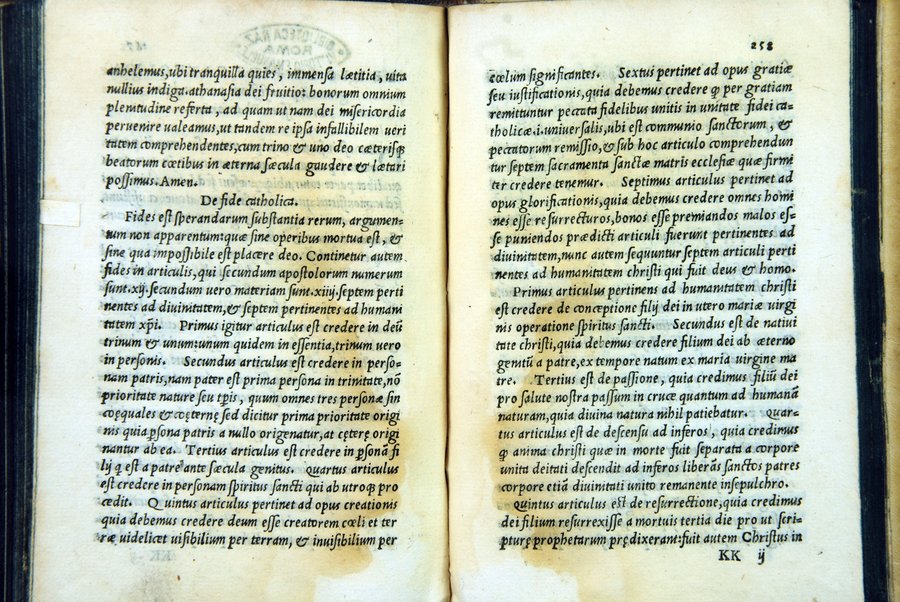 BIBLIOTECA NAZ
ROMA
anhelemus, ubi tranquilla quies, immensa lætitia, uita
nullius indiga. athanasia dei fruitio: bonorum omnium
plenitudine referta, ad quam ut nam dei misericordia
peruenire ualeamus, ut tandem re ipsa infallibilem ueri
tatem comprehendentes, cum trino & uno deo cæterisq;
beatorum cœtibus in æterna sæcula gaudere & lætari
possimus. Amen.
De fide catholica.
Fides est sperandarum substantia rerum, argumen-
tum non apparentum: quæ sine operibus mortua est, &
sine qua impossibile est placere deo. Continetur autem
fides in articulis, qui secundum apostolorum numerum
sunt. xij. secundum uero materiam sunt. xiiij. septem perti
nentes ad diuinitatem, & septem pertinentes ad humani
tatem xp̄i. Primus igitur articulus est credere in deū
trinum & unum: unum quidem in essentia, trinum uero
in personis. Secundus articulus est credere in perso-
nam patris, nam pater est prima persona in trinitate, nō
prioritate nature seu tp̄is, quum omnes tres personæ sin
coęquales & coęternę sed dicitur prima prioritate origi
nis quia p̱sona patris a nullo origenatur, at cęterę origi
nantur ab ea. Tertius articulus est credere in p̱sonā fi
lij q est a patre ante sæcula genitus. Quartus articulus
est credere in personam spiritus sancti qui ab utroq; pro
cædit. Quintus articulus pertinet ad opus creationis
quia debemus credere deum esse creatorem cœli et ter
ræ uidelicet uisibilium per terram, & inuisibilium per
258
cœlum significantes. Sextus pertinet ad opus gratiæ
seu iustificationis, quia debemus credere ꝙ per gratiam
remittuntur peccata fidelibus unitis in unitate fidei ca-
tholicæ .i. uniuersalis, ubi est communio sanctorum, &
peccatorum remissio, & sub hoc articulo comprehendun
tur septem sacramenta sanctæ matris ecclesiæ quæ firmi
ter credere tenemur. Septimus articulus pertinet ad
opus glorificationis, quia debemus credere omnes homi
nes esse resurrecturos, bonos esse premiandos malos es-
se puniendos prædicti articuli fuerunt pertinentes ad
diuinitatem, nunc autem sequuntur septem articuli perti
nentes ad humanitatem christi qui fuit deus & homo.
Primus articulus pertinens ad humanitatem christi
est credere de conceptione filij dei in utero mariæ uirgi
nis operatione spiritus sancti. Secundus est de natiui
tate christi, quia debemus credere filium dei ab æterno
genitū a patre, ex tempore natum ex maria uirgine ma
tre. Tertius est de passione, quia credimus filiū dei
pro salute nostra passum in cruce quantum ad humanā
naturam, quia diuina natura nihil patiebatur. Quar-
tus articulus est de descensu ad inferos, quia credimus
ꝙ anima christi quæ in morte fuit separata a corpore
unita deitati descendit ad inferos liberās sanctos patres
corpore etiā diuinitati unito remanente in sepulchro.
Quintus articulus est de resurrectione, quia credimus
dei filium resurrexisse a mortuis tertia die pro ut scri-
pturę prophetarum prędixerant: fuit autem Christus in
KK ij